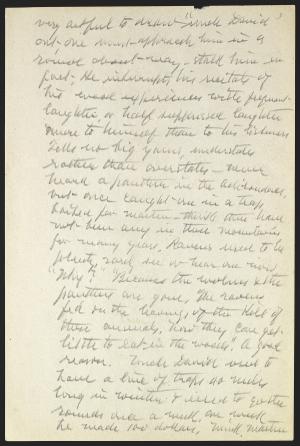 very artful to draw "Uncle David"
out - one must approach him in a
round about way - stalk him in
fact. He interrupts his recitals of
his wood experiences with frequent
laughter or half suppressed laughter
more to himself than to his listeners
Tells no big yarns, understates
rather than overstates - never
heard a panther in the Adirondacks,
but once caught one in a trap
baited for marten - thinks there have
not been any in those mountains
for many years. Ravens used to be
plenty, rarely see or hear one now.
"Why?" "Because the wolves & the
panthers are gone. The ravens
fed on the leavings of the kill of
those animals, now they can get
little to eat in the woods." A good
reason. Uncle David used to
have a line of traps 20 miles
long in winter & used to go the
rounds once a week, one week
he made 100 dollars, mink, marten